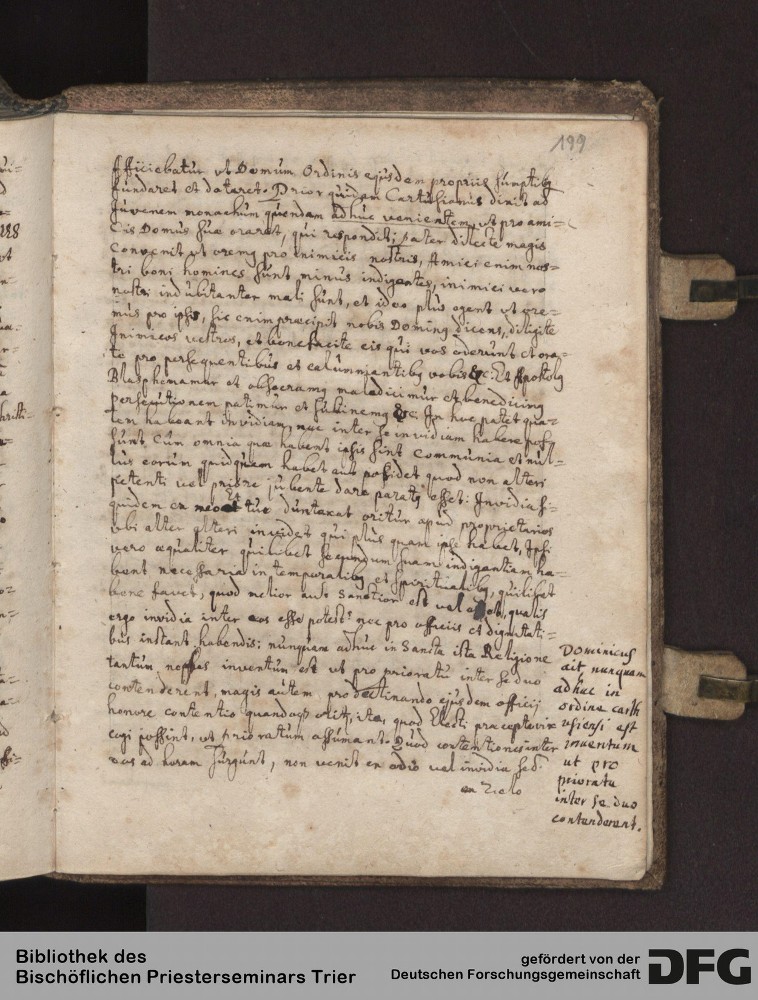 199
fficiebatur ut Domum Ordinis ejusdem propriis sumptibq
fundaret et dotaret. Prior quidam Cartusiensis dixit ad
Juvenem monachum quendam adhuc venientem, ut pro ami=
cis Domus suæ oraret, qui respondit; pater dilecte magis
convenit ut oremq pro inimicis nostris, Amici enim nos=
tri boni homines sunt, minus indigentes, inimici vero
nostri indubitanter mali sunt, et ideo plus egent ut ore=
mus pro ipsis, sic enim præcipit nobis Dominq dicens, diligite
Inimicos vestros, et benefacite eis qui vos oderunt et ora=
te pro persequentibus et calumniantibq vobis &c: Et Apostolq
Blasphemamur et obsecramq maledicimur et benedicimq
persecutionem patimur et sustinemq &c. In huc patet qua=
lem habeant invidiam, nec inter se invidiam habere poss
sunt, Cum omnia quæ habent ipsis sint communia et nul=
lus eorum quidquam habet aut possidet quod non alteri
petenti vel priore jubente dare paratq esset: Invidia si=
quidem ex meo et tuo duntaxat oritur apud proprietarios
ubi alter alteri invidet qui plus quam ipse habet, Ipsi
vero æqualiter quilibet secundum suam indigentiam ha=
bent necessaria in temporalibq et spiritualibq, quilibet
bone favet, quod melior aut sanctior est vel qualis
ergo invidia inter eos esse potest? nec pro officiis et dignitati=
bus instant habendis: nunquam adhuc in Sancta ista Religione
tantum nephas inventum est ut pro prioratu inter se duo
contenderent, magis autem pro declinando ejusdem officij
honore contentio quandoq orit, ita, quod Electi præceptu vix
cogi possint, ut prioratum assumant. Quod contentiones inter
eos ad horam surgunt, non venit ex odio vel invidia sed
ex Zelo
Dominicus
ait nunquam
adhuc in
ordine carth
usiensi est
inventum
ut pro
prioratu
inter se duo
contenderent.
Bibliothek des
Bischöflichen Priesterseminars Trier
gefördert von der
Deutschen Forschungsgemeinschaft
DFG